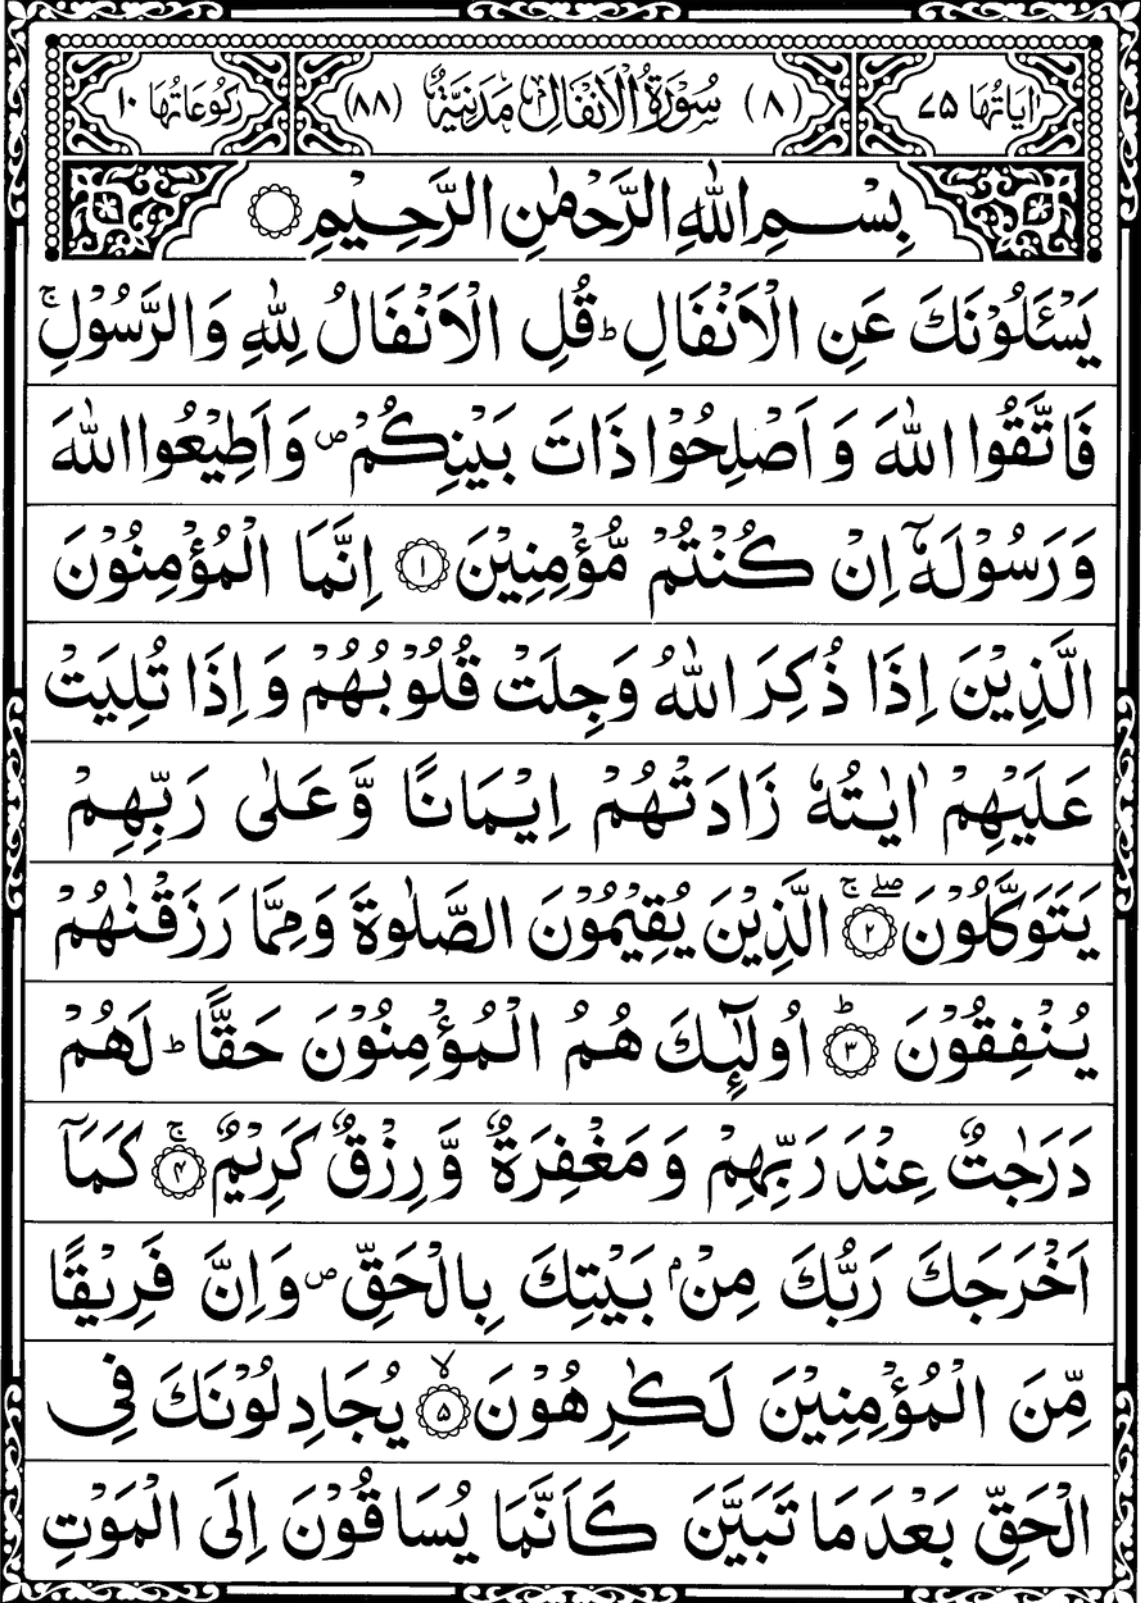 اٰيَاتُهَا ٧٥ (٨) سُوْرَةُ الْاَنْفَالِ مَدَنِيَّةٌ (٨٨) رُكُوْعَاتُهَا ١٠
بِسْمِ اللّٰهِ الرَّحْمٰنِ الرَّحِيْمِ
يَسْـَٔلُوْنَكَ عَنِ الْاَنْفَالِ ؕ قُلِ الْاَنْفَالُ لِلّٰهِ وَ الرَّسُوْلِ ۚ
فَاتَّقُوا اللّٰهَ وَ اَصْلِحُوْا ذَاتَ بَيْنِكُمْ ۪ وَ اَطِيْعُوا اللّٰهَ
وَ رَسُوْلَهٗۤ اِنْ كُنْتُمْ مُّؤْمِنِيْنَ ﴿١﴾ اِنَّمَا الْمُؤْمِنُوْنَ
الَّذِيْنَ اِذَا ذُكِرَ اللّٰهُ وَجِلَتْ قُلُوْبُهُمْ وَ اِذَا تُلِيَتْ
عَلَيْهِمْ اٰيٰتُهٗ زَادَتْهُمْ اِيْمَانًا وَّ عَلٰى رَبِّهِمْ
يَتَوَكَّلُوْنَ ۖۚ ﴿٢﴾ الَّذِيْنَ يُقِيْمُوْنَ الصَّلٰوةَ وَ مِمَّا رَزَقْنٰهُمْ
يُنْفِقُوْنَ ؕ ﴿٣﴾ اُولٰٓئِكَ هُمُ الْمُؤْمِنُوْنَ حَقًّا ؕ لَهُمْ
دَرَجٰتٌ عِنْدَ رَبِّهِمْ وَ مَغْفِرَةٌ وَّ رِزْقٌ كَرِيْمٌ ۚ ﴿۴﴾ كَمَاۤ
اَخْرَجَكَ رَبُّكَ مِنْۢ بَيْتِكَ بِالْحَقِّ ۪ وَ اِنَّ فَرِيْقًا
مِّنَ الْمُؤْمِنِيْنَ لَكٰرِهُوْنَ ۙ ﴿۵﴾ يُجَادِلُوْنَكَ فِى
الْحَقِّ بَعْدَ مَا تَبَيَّنَ كَاَنَّمَا يُسَاقُوْنَ اِلَى الْمَوْتِ